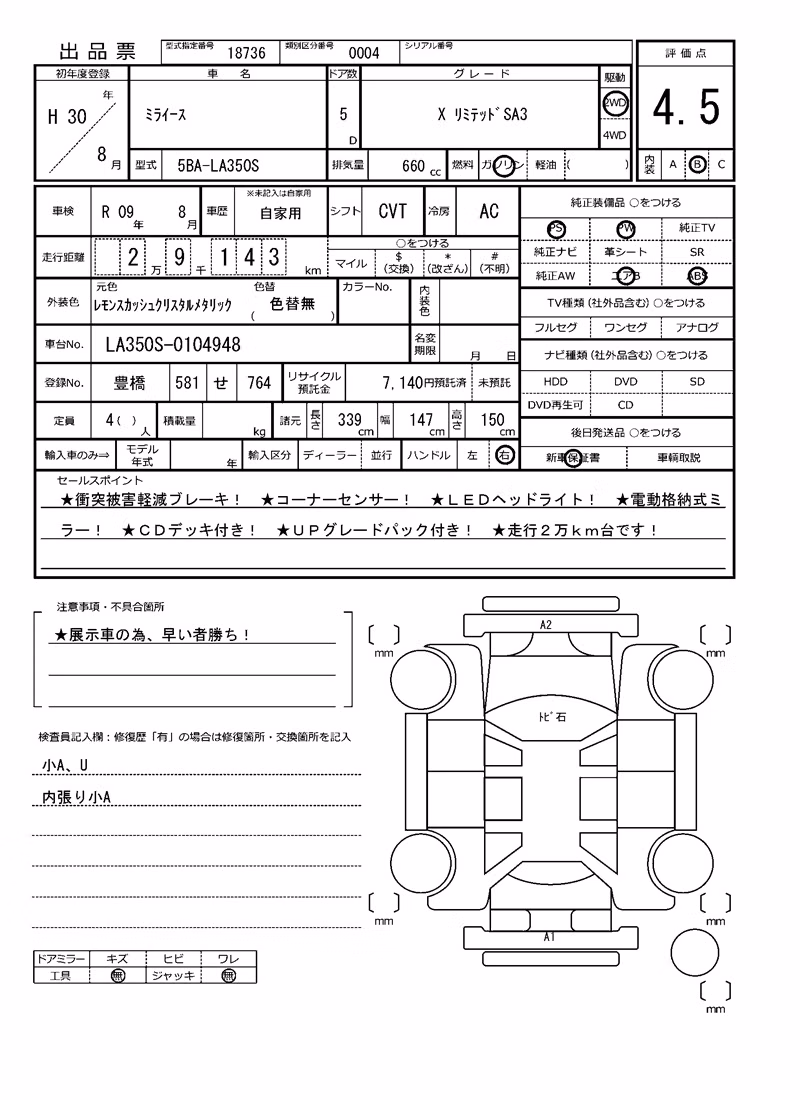 出品票 型式指定番号 18736 類別区分番号 0004 シリアル番号
評価点
初年度登録 車名 ドア数 グレード 駆動
H 30 年 8 月 ミライース 5 D X リミテッドSA3 2WD 4WD
4.5
型式 5BA-LA350S 排気量 660 cc 燃料 ガソリン 軽油 ( )
内装 A B C
車検 R 09 年 8 月 車歴 ※未記入は自家用 自家用 シフト CVT 冷房 AC
走行距離 2 万 9 千 1 4 3 km
○をつける
マイル $(交換) *(改ざん) #(不明)
外装色 元色 レモンスカッシュクリスタルメタリック 色替 ( 色替無 ) カラーNo. 内装色
車台No. LA350S-0104948 名変期限 月 日
登録No. 豊橋 581 せ 764 リサイクル預託金 7,140円預託済 未預託
定員 4( ) 人 積載量 kg 諸元 長さ 339 cm 幅 147 cm 高さ 150 cm
輸入車のみ⇒ モデル年式 年 輸入区分 ディーラー 並行 ハンドル 左 右
純正装備品 ○をつける
PS PW 純正TV
純正ナビ 革シート SR
純正AW エアB ABS
TV種類(社外品含む) ○をつける
フルセグ ワンセグ アナログ
ナビ種類(社外品含む) ○をつける
HDD DVD SD
DVD再生可 CD
後日発送品 ○をつける
新車保証書 車輌取説
セールスポイント
★衝突被害軽減ブレーキ! ★コーナーセンサー! ★LEDヘッドライト! ★電動格納式ミ
ラー! ★CDデッキ付き! ★UPグレードパック付き! ★走行2万km台です!
注意事項・不具合箇所
★展示車の為、早い者勝ち!
検査員記入欄:修復歴「有」の場合は修復箇所・交換箇所を記入
小A、U
内張り小A
ドアミラー キズ ヒビ ワレ
工具 無 ジャッキ 無
A2
mm mm
トビ石
mm mm
A1
mm